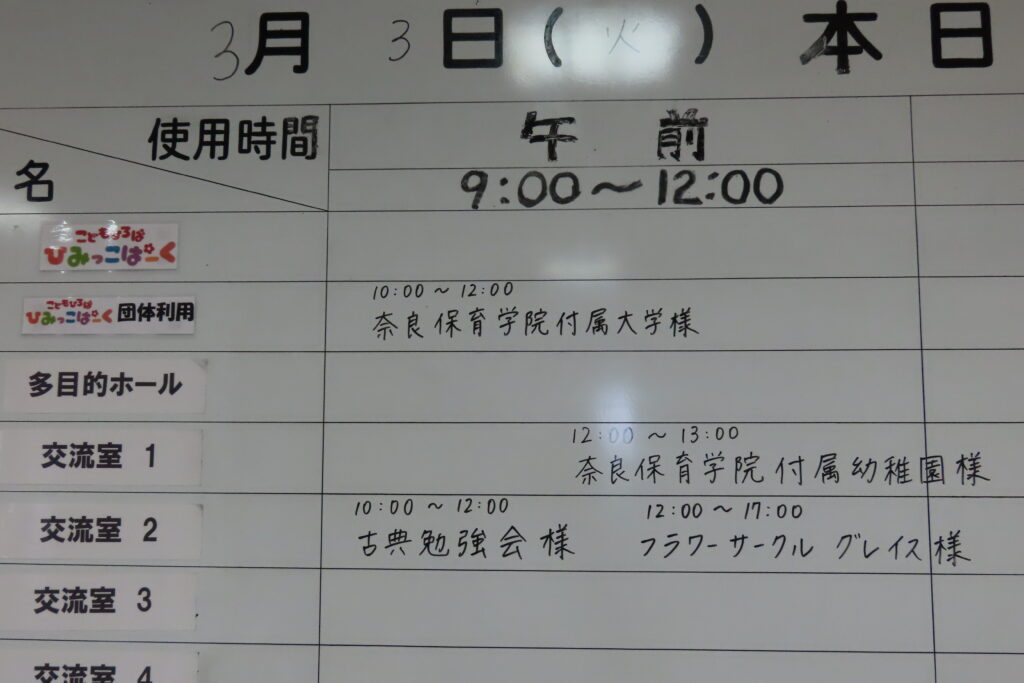 3月 3日(火) 本日
使用時間
名
午 前
9:00～12:00
こどもひろば
ひみっこぱーく
こどもひろば
ひみっこぱーく 団体利用
10:00 ～ 12:00
奈良保育学院付属大学様
多目的ホール
交流室 1
12:00 ～ 13:00
奈良保育学院付属幼稚園様
交流室 2
10:00 ～ 12:00
古典勉強会様
12:00 ～ 17:00
フラワーサークル グレイス様
交流室 3
交流室 4